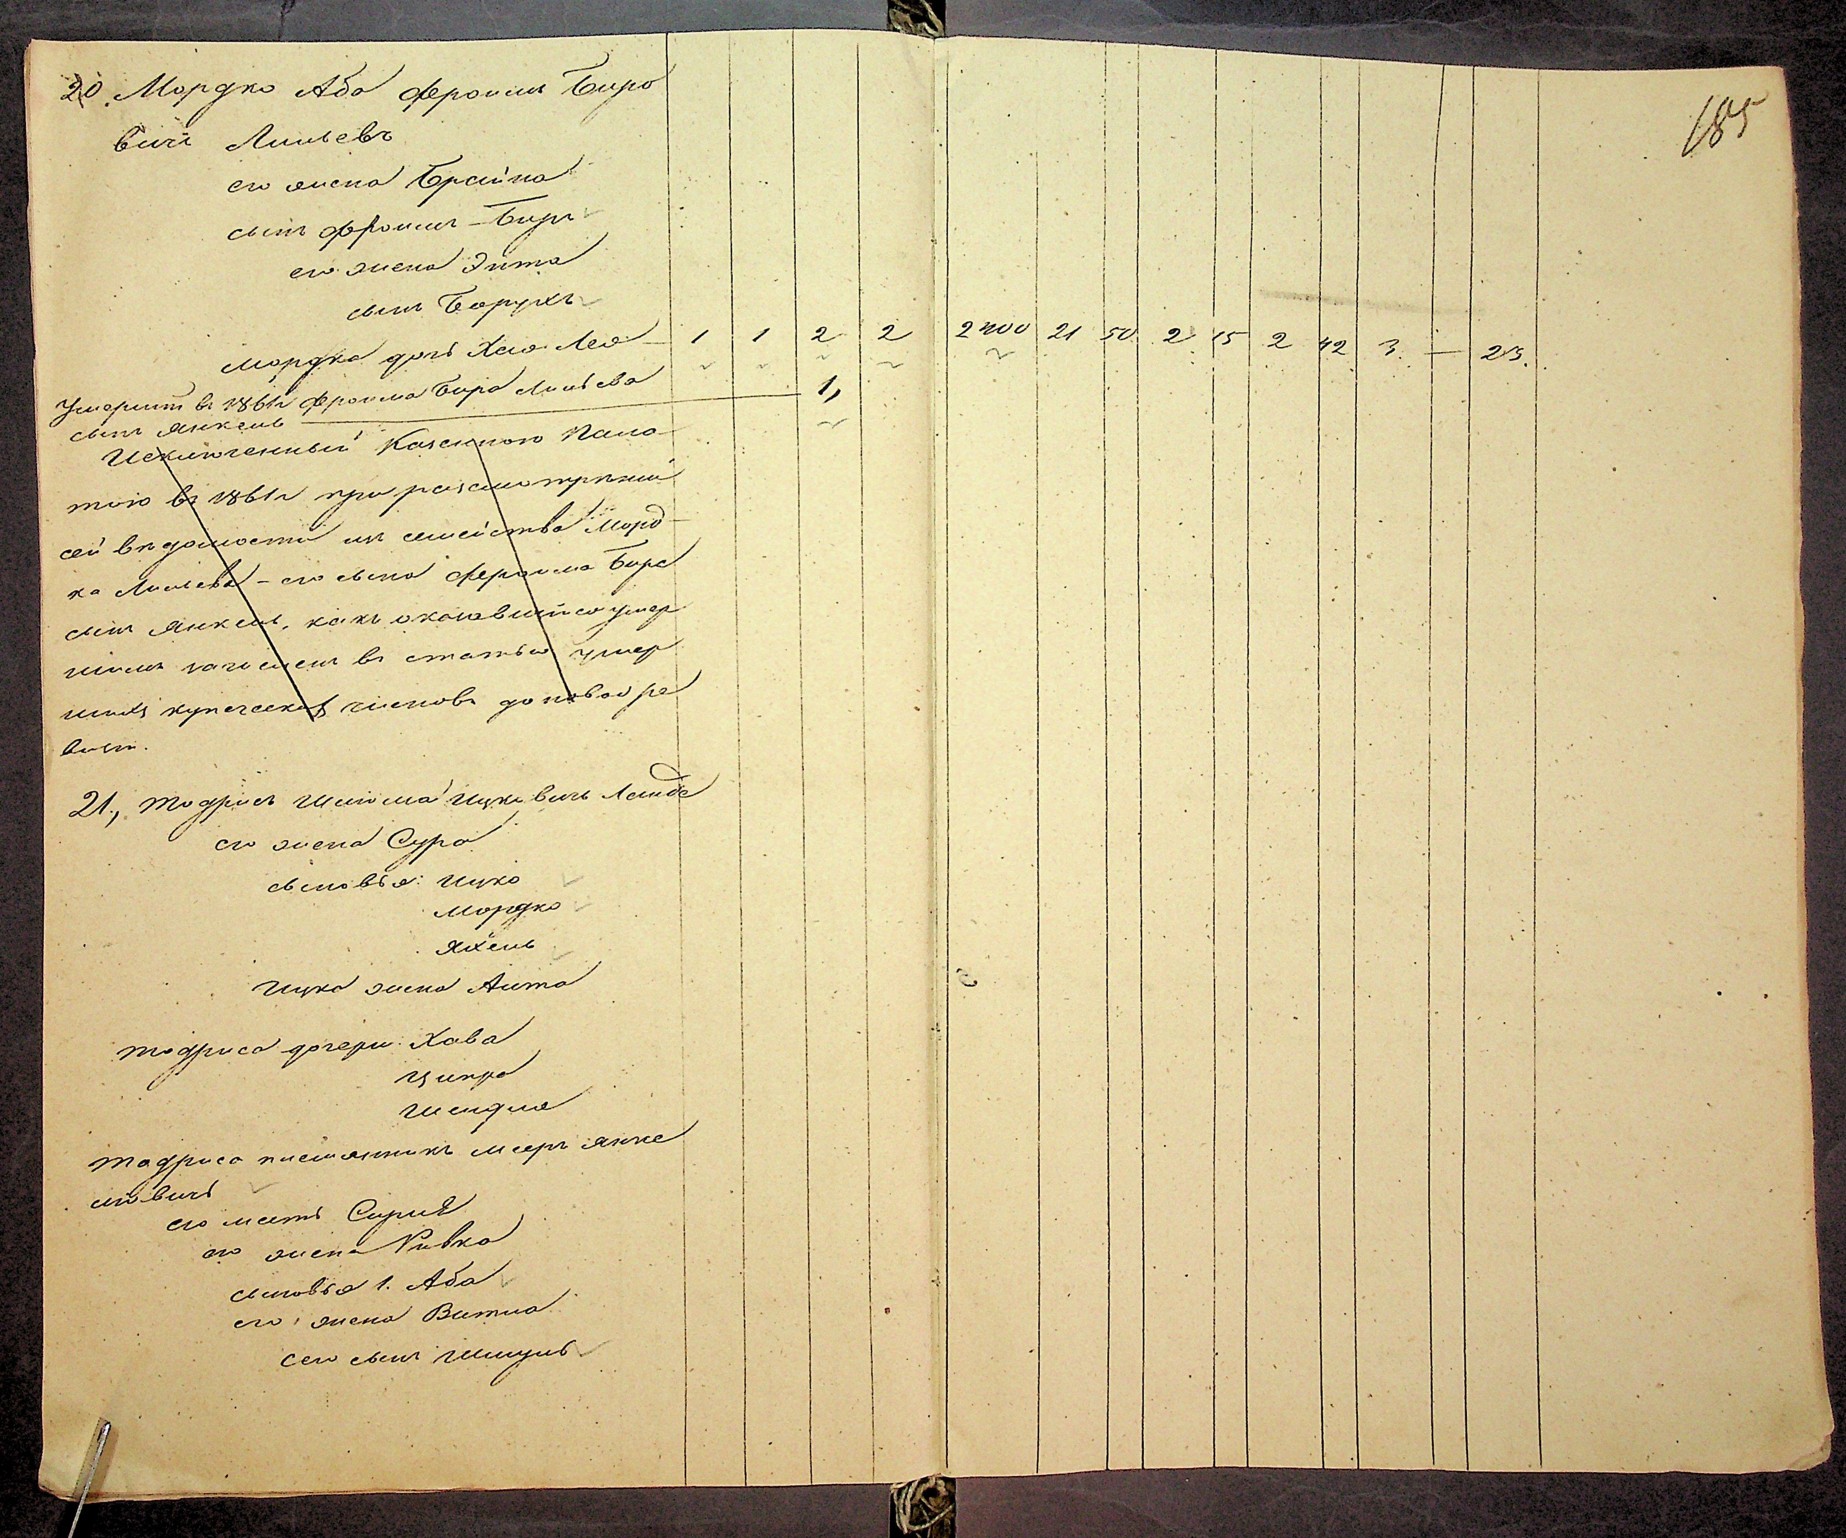 185
20. Мордко Аба Фроим Биро
вичъ Лильевъ
его жена Брайна
сынъ Фроимъ-Биръ
его жена Энта
сынъ Борухъ
Мордка дочь Хая Лея — 1 1 2 2 2400 21 50 2 15 2 42 3 — 23.
Умершій въ 1861г Фроима Бира Лильева
сынъ Янкель — 1,
Исключенный Казенною Пала-
тою въ 1861г при разсмотрѣніи
сей вѣдомости изъ семейства Морд-
ка Лильева - его сына Фроима Бира
сынъ Янкель, какъ оказавшійся умер
шимъ зачисленъ въ статью умер
шихъ купеческихъ членовъ до новой ре
визіи.
21., Тодрисъ Шлома Ицковичъ Ланде
его жена Сура
сыновья: Ицко
Мордко
Яхель
Ицка жена Аита
Тодриса дочери: Хава
Ципра
Шендля
Тодриса племянникъ Мееръ Янке
левичъ
его мать Сирля
его жена Ривка
сыновья 1. Аба
его жена Витла
сего сынъ Шмуль